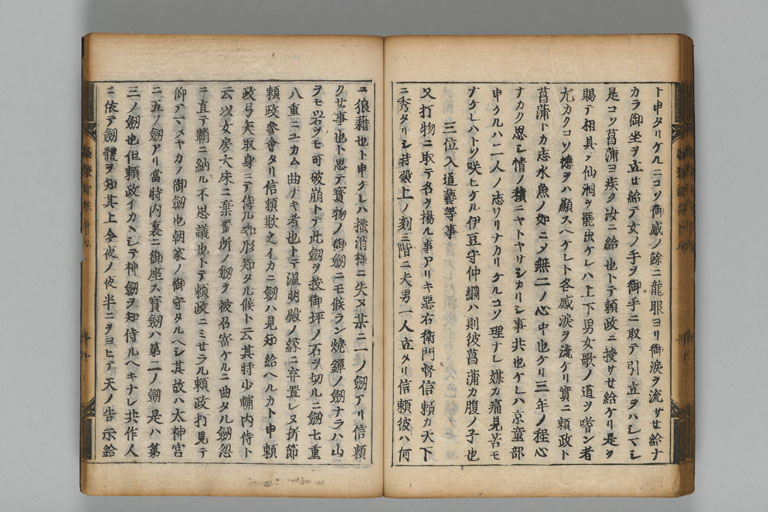 ト申タリケルニコソ御感ノ餘ニ龍眼ヨリ御涙ヲ流サセ給ナ
カラ御坐ヲ立セ給テ女ノ手ヲ御手ニ取テ引立ヲハシマシ
是コソ菖蒲ヨ疾ク汝ニ給也トテ頼政ニ授サセ給ケリ是ヲ
賜テ相具テ仙洞ヲ罷出ケレハ上下男女歌ノ道ヲ嗜ン者
尤カクコソ徳ヲハ顕スヘケレト各感涙ヲ流ケリ實ニ頼政ト
菖蒲トカ志水魚ノ如ニメ無二ノ心中也ケリ三年ノ程心
ナカク思シ情ノ積ニヤトヤサシカリシ事共也ケレハ京童部
申ケルハ二人ノ志ワリナカリケルコソ理ナレ媒カ痛見苦モ
ナケレハトソ咲ヒケル伊豆守仲綱ハ則彼菖蒲カ腹ノ子也
三位入道藝等事
又打物ニ取テ名ヲ揚ル事アリキ惡右衛門督信頼カ天下
ニ秀タリシ時殿上ノ刻三階ニ大男一人立タリ信頼彼ハ何
ニ狼藉也ト申ケレハ掻消様ニ失ヌ其ニ一ノ劔アリ信頼
クせ事也ト思テ寳物ノ御劔ニモ候ラン燒鐔ノ劔ナラハ山
ヲモ岩ヲモ可破崩トテ此劔ヲ披御坪ノ石ヲ切ルニ劔七重
八重ニユカム曲ナキ者也トテ温明殿ノ縁ニ弃置レヌ折節
頼政參會タリ信頼歎之イカニ劔ハ見知給ヘルカト申頼
政弓矢取身ニテ侍ル如形知タル候ト云其時少輔内侍ト
云以女房大床ニ棄置所ノ劔ヲ被召寄ケルニ曲タル劔忽
ニ直テ鞘ニ納ル不思議也トテ頼政ニミせラル頼政打見テ
仰アマメヤカノ御劔也朝家ノ御守タルヘシ其故ハ太神宮
ニ五ノ劔アリ當時内裏ニ御座ス寳劔ハ第二ノ劔是ハ第
三ノ劔也但頼政イカヽシテ神劔ヲ知侍ルヘキナレ共作人
ニ依テ劔體ヲ知其上今夜ノ夜半ニヲヨヒテ天ノ告示給